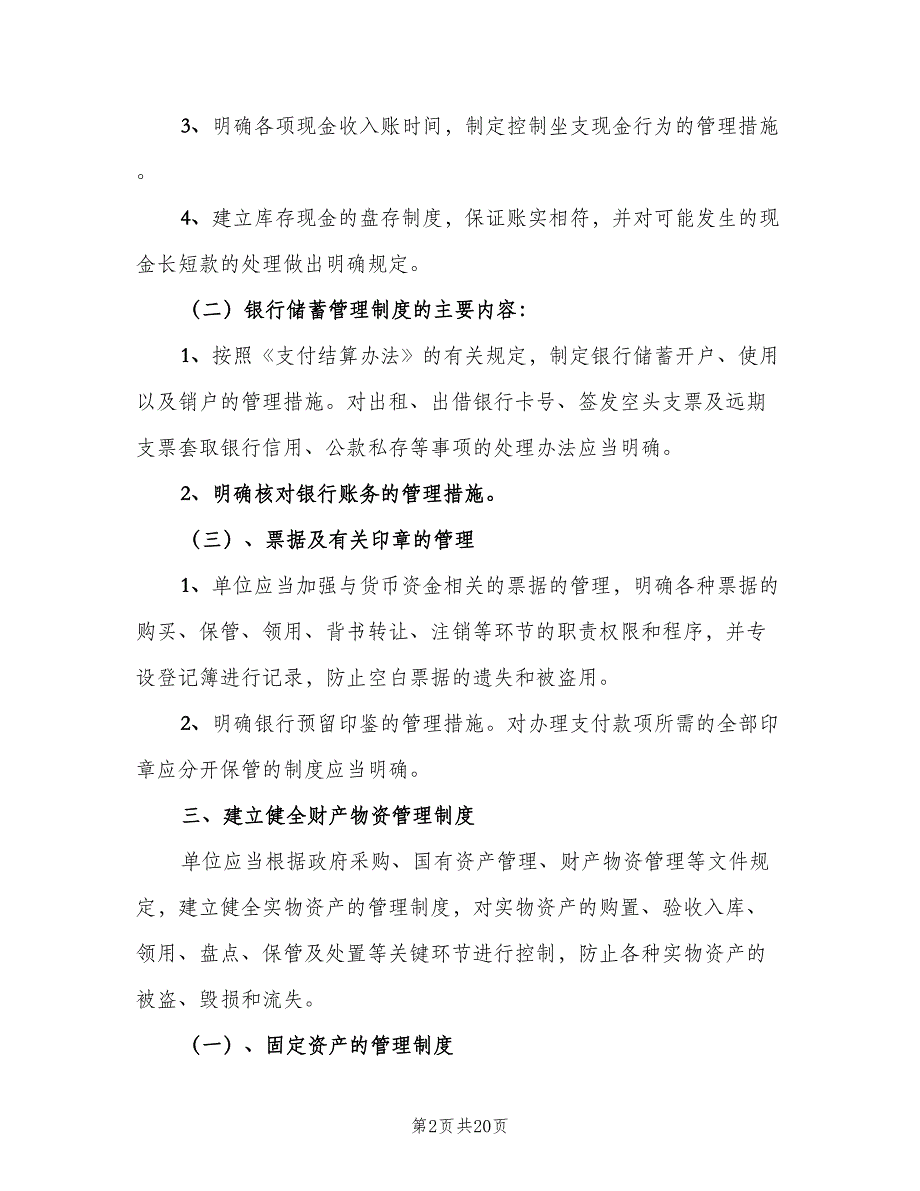 3、明确各项现金收入账时间，制定控制坐支现金行为的管理措施
。
4、建立库存现金的盘存制度，保证账实相符，并对可能发生的现
金长短款的处理做出明确规定。
（二）银行储蓄管理制度的主要内容：
1、按照《支付结算办法》的有关规定，制定银行储蓄开户、使用
以及销户的管理措施。对出租、出借银行卡号、签发空头支票及远期
支票套取银行信用、公款私存等事项的处理办法应当明确。
2、明确核对银行账务的管理措施。
（三）、票据及有关印章的管理
1、单位应当加强与货币资金相关的票据的管理，明确各种票据的
购买、保管、领用、背书转让、注销等环节的职责权限和程序，并专
设登记簿进行记录，防止空白票据的遗失和被盗用。
2、明确银行预留印鉴的管理措施。对办理支付款项所需的全部印
章应分开保管的制度应当明确。
三、建立健全财产物资管理制度
单位应当根据政府采购、国有资产管理、财产物资管理等文件规
定，建立健全实物资产的管理制度，对实物资产的购置、验收入库、
领用、盘点、保管及处置等关键环节进行控制，防止各种实物资产的
被盗、毁损和流失。
（一）、固定资产的管理制度
第2页共20页